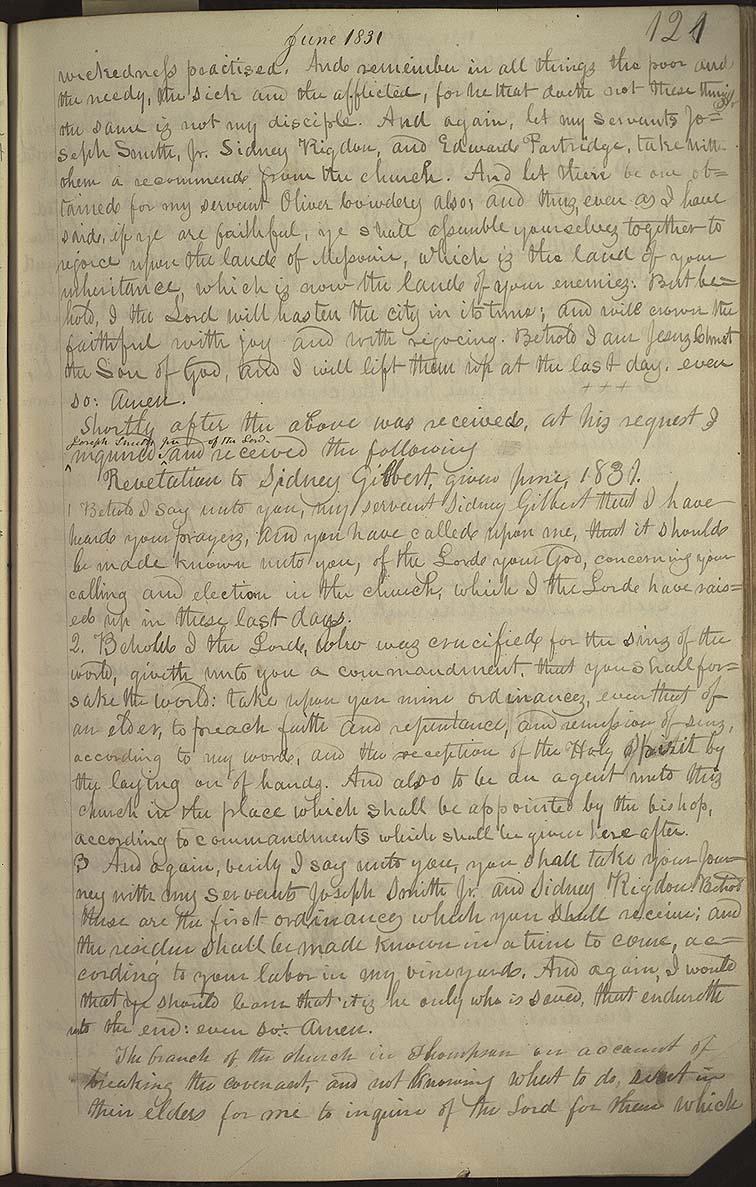 June 1831
121
wickedness practised. And remember in all things the poor and
the needy, the sick and the afflicted, for he that doeth not these things,
the same is not my disciple. And again, let my servants Jo=
seph Smith, Jr. Sidney Rigdon, and Edward Partridge, take with
them a recommend from the church. And let there be one ob=
tained for my servant Oliver Cowdery also; and thus, even as I have
said, if ye are faithful, ye shall assemble yourselves together to
rejoice upon the land of Missouri, which is the land of your
inheritance, which is now the land of your enemies: But be=
hold, I the Lord will hasten the city in its time; and will crown the
faithful with joy and with rejoicing. Behold I am Jesus Christ
the Son of God, and I will lift them up at the last day. even
so: Amen.
+++
Shortly after the above was received, at his request I
Joseph Smith, jun of the Lord
inquired ^ and received the following
Revelation to Sidney Gilbert, given June, 1831.
1 Behold I say unto you, my servant Sidney Gilbert that I have
heard your prayers, and you have called upon me, that it should
be made known unto you, of the Lord your God, concerning your
calling and election in the church, which I the Lord have rais=
ed up in these last days.
2. Behold I the Lord, who was crucified for the sins of the
world, giveth unto you a commandment, that you shall for=
sake the world: take upon you mine ordinances, even that of
an elder, to preach faith and repentance, and remission of sins,
according to my word, and the reception of the Holy Spirit by
the laying on of hands. And also to be an agent unto this
church in the place which shall be appointed by the bishop,
according to commandments which shall be given here after.
3 And again, verily I say unto you, you shall take your jour=
ney with my servants Joseph Smith Jr. and Sidney Rigdon. Behold
these are the first ordinances which you shall receive; and
the residue shall be made known in a time to come, ac=
cording to your labor in my vineyard. And again, I would
that ye should learn that it is he only who is saved, that endureth
unto the end: even so: Amen.
The branch of the church in Thompson on account of
breaking the covenant, and not knowing what to do, sent in
their elders for me to inquire of the Lord for them which